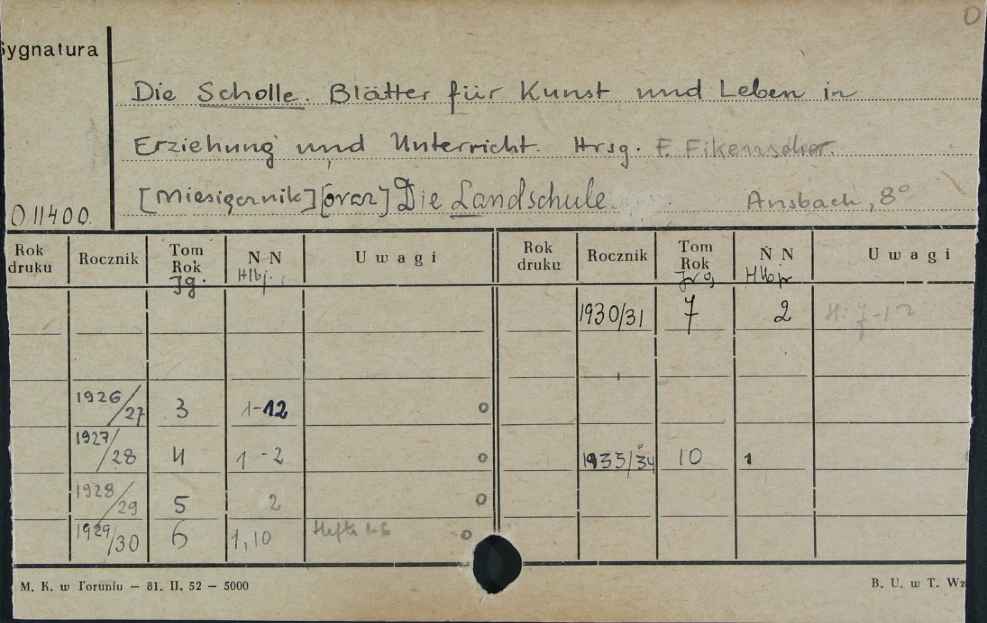 O
Sygnatura
Die Scholle. Blätter für Kunst und Leben in
Erziehung und Unterricht. Hrsg. F. Fikenscher.
[Miesięcznik] [oraz] Die Landschule. Ansbach, 8°
O 11400.
Rok druku Rocznik Tom Rok Jg. N N Hlbj. Uwagi Rok druku Rocznik Tom Rok Jrg N N Hlbjr Uwagi
1930/31 7 2 H. 7-12
1926/27 3 1-12 o
1927/28 4 1-2 o 1933/34 10 1
1928/29 5 2 o
1929/30 6 1,10 Hefte 1-6 o
M. K. w Toruniu — 81. II. 52 — 5000 B. U. w T. Wz